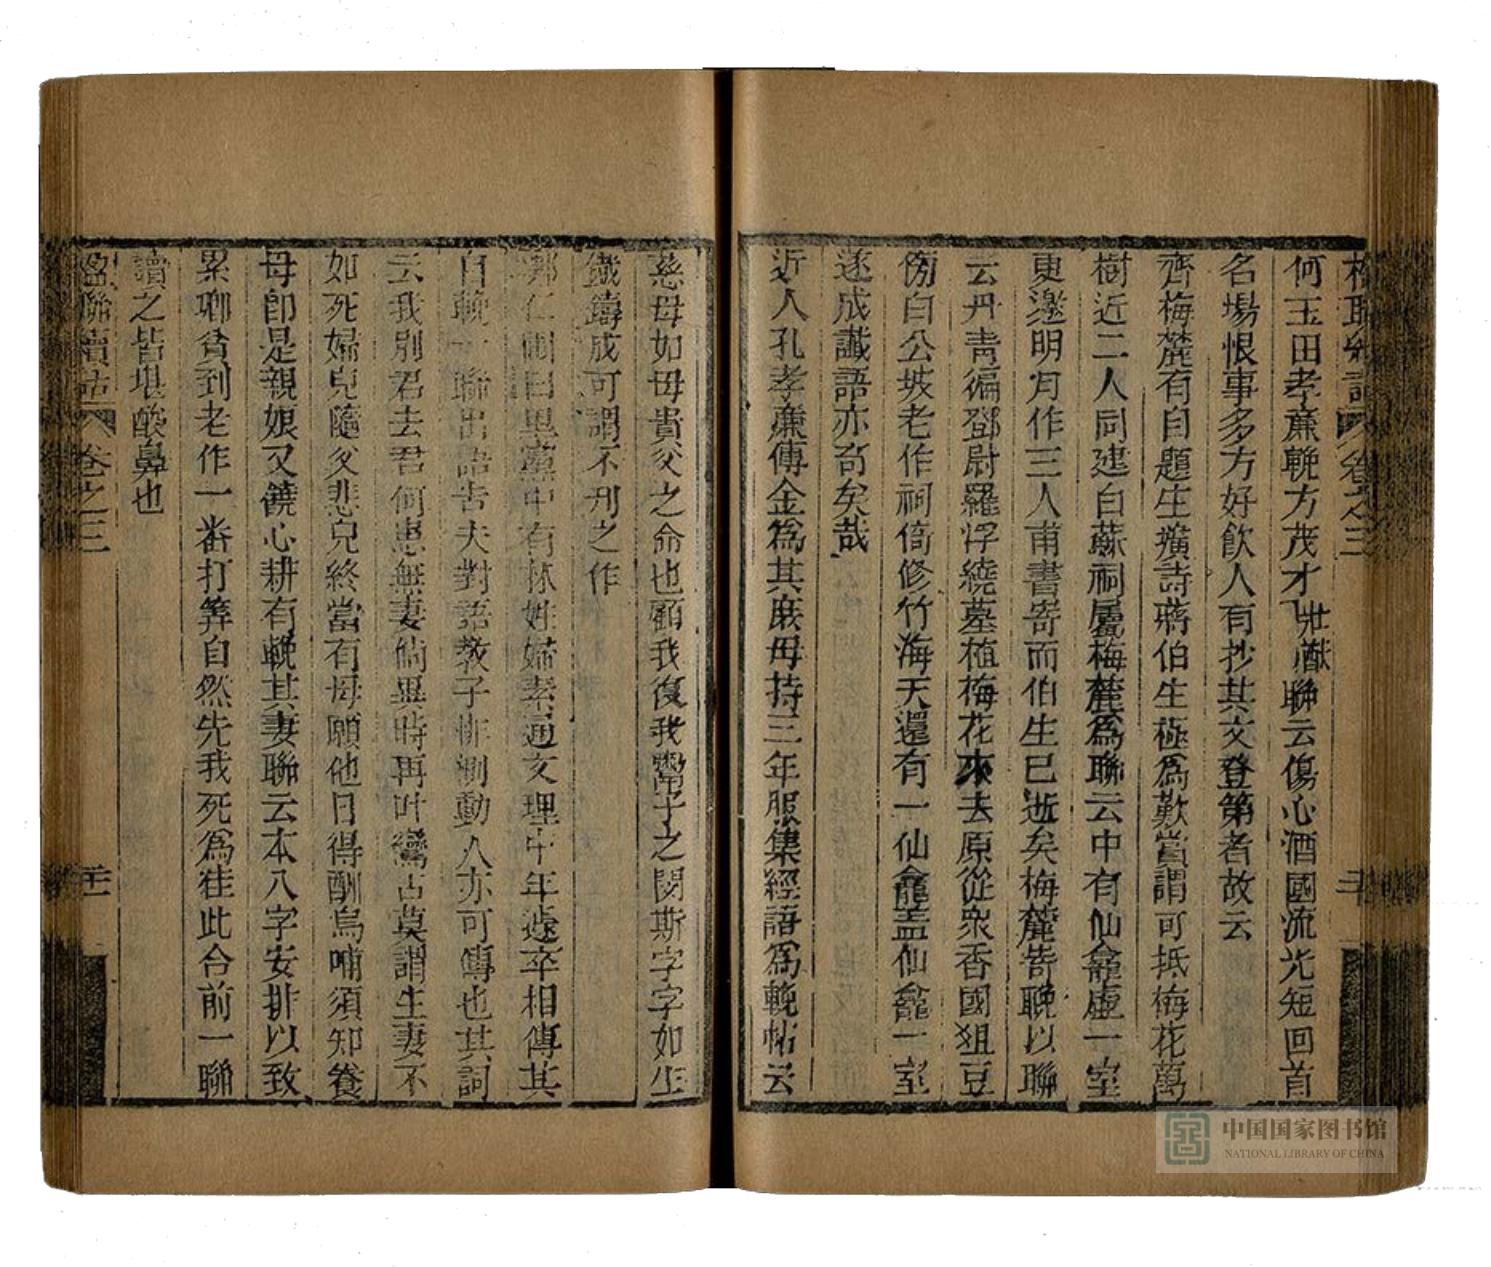 何玉田孝廉輓方茂才壯猷聯云傷心酒國流光短回首
名場恨事多方好飲人有抄其文登第者故云
齊梅麓有自題生壙詩蔣伯生極爲歎賞謂可抵梅花萬
樹近二人同建白蘇祠屬梅麓爲聯云中有仙龕虛一室
更邀明月作三人甫書寄而伯生已逝矣梅麓寄聯以聯
云丹青徧鄧尉羅浮繞墓植梅花來去原從衆香國俎豆
傍白公坡老作祠倚修竹海天還有一仙龕蓋仙龕一室
遂成讖語亦奇矣哉
近人孔孝廉傳金爲其庶母持三年服集經語爲輓帖云
慈母如母貴父之命也顧我復我鬻子之閔斯字字如生
鐵鑄成可謂不刋之作
仁圃曰里黨中有林姓婦素通文理中年遽卒相傳其
自輓一聯出語告夫對語教子悱惻動人亦可傳也其詞
云我別君去君何患無妻倘異時再叶鸞占莫謂生妻不
如死婦兒隨父悲兒終當有母願他日得酬烏哺須知養
母卽是親娘又饒心耕有輓其妻聯云本八字安排以致
累卿貧到老作一番打算自然先我死爲佳此合前一聯
讀之皆堪酸鼻也
楹聯續話 卷之三 二十一
中国国家图书馆
NATIONAL LIBRARY OF CHINA